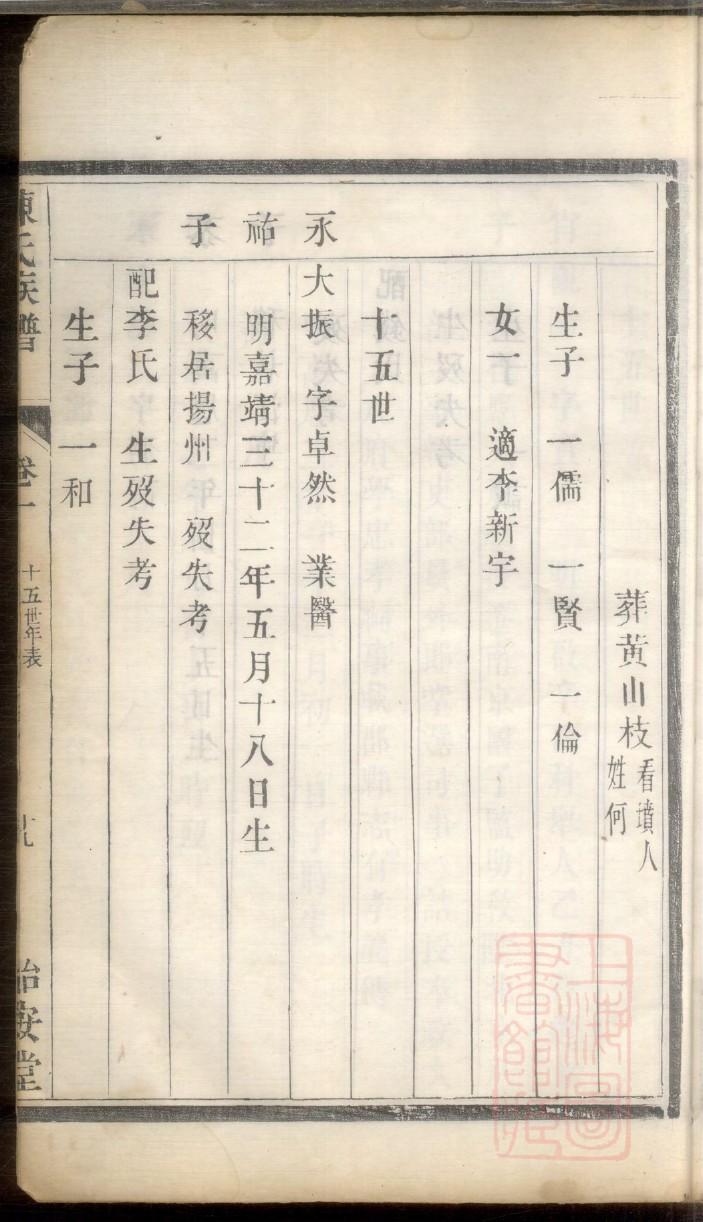 葬黄山枝看墳人
姓何
生子 一儒 一賢 一倫
女一 適李新宇
十五世
永祐子
大振 字卓然 業醫
明嘉靖三十二年五月十八日生
移居揚州 歿失考
配李氏 生歿失考
生子 一和
陳氏族譜 卷一 十五世年表 十九 治安堂
上海圖書館藏